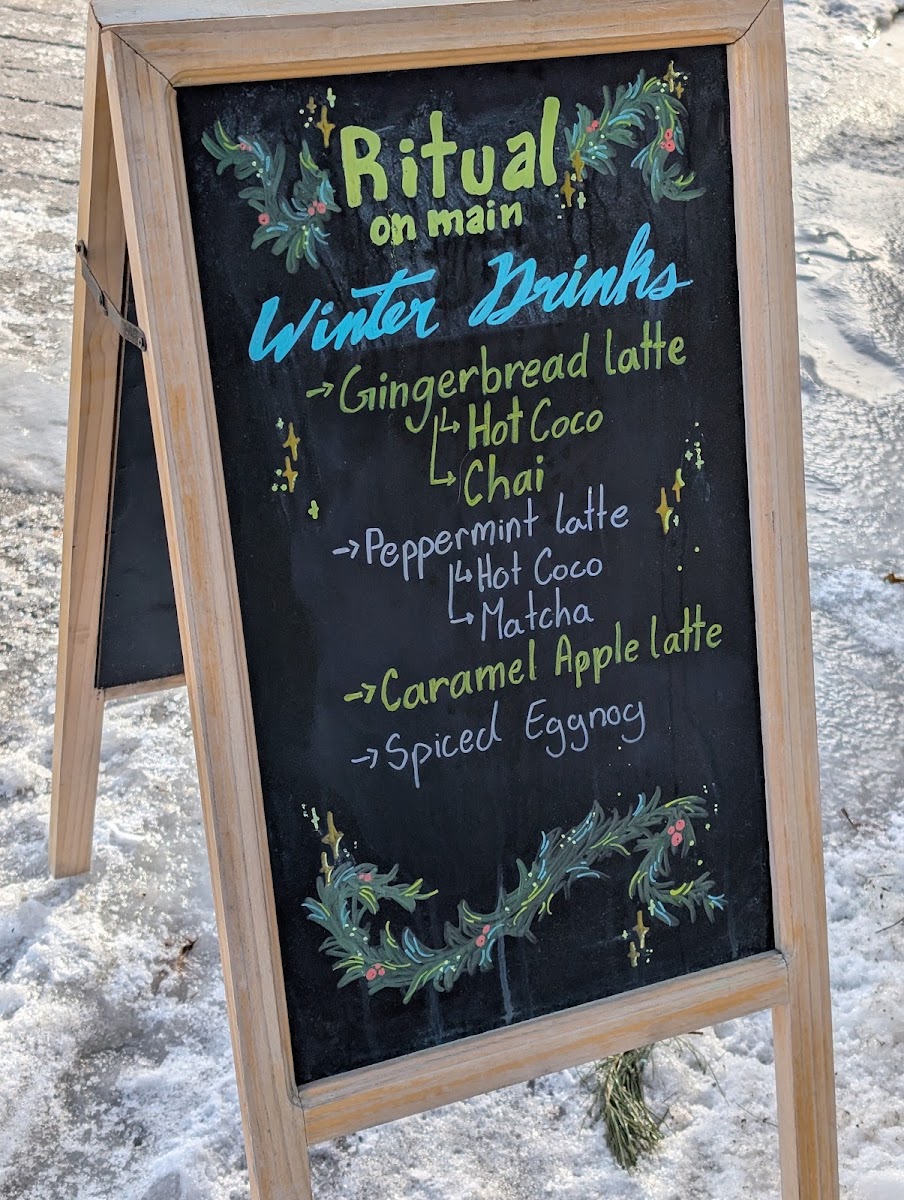 Ritual
on main
Winter Drinks
→ Gingerbread latte
↳ Hot Coco
↳ Chai
→ Peppermint latte
↳ Hot Coco
↳ Matcha
→ Caramel Apple latte
→ Spiced Eggnog